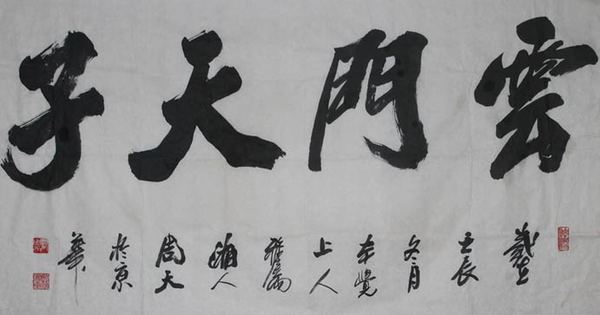 雲門天子
歲在壬辰冬月本覺上人雅屬湘人周天於京華